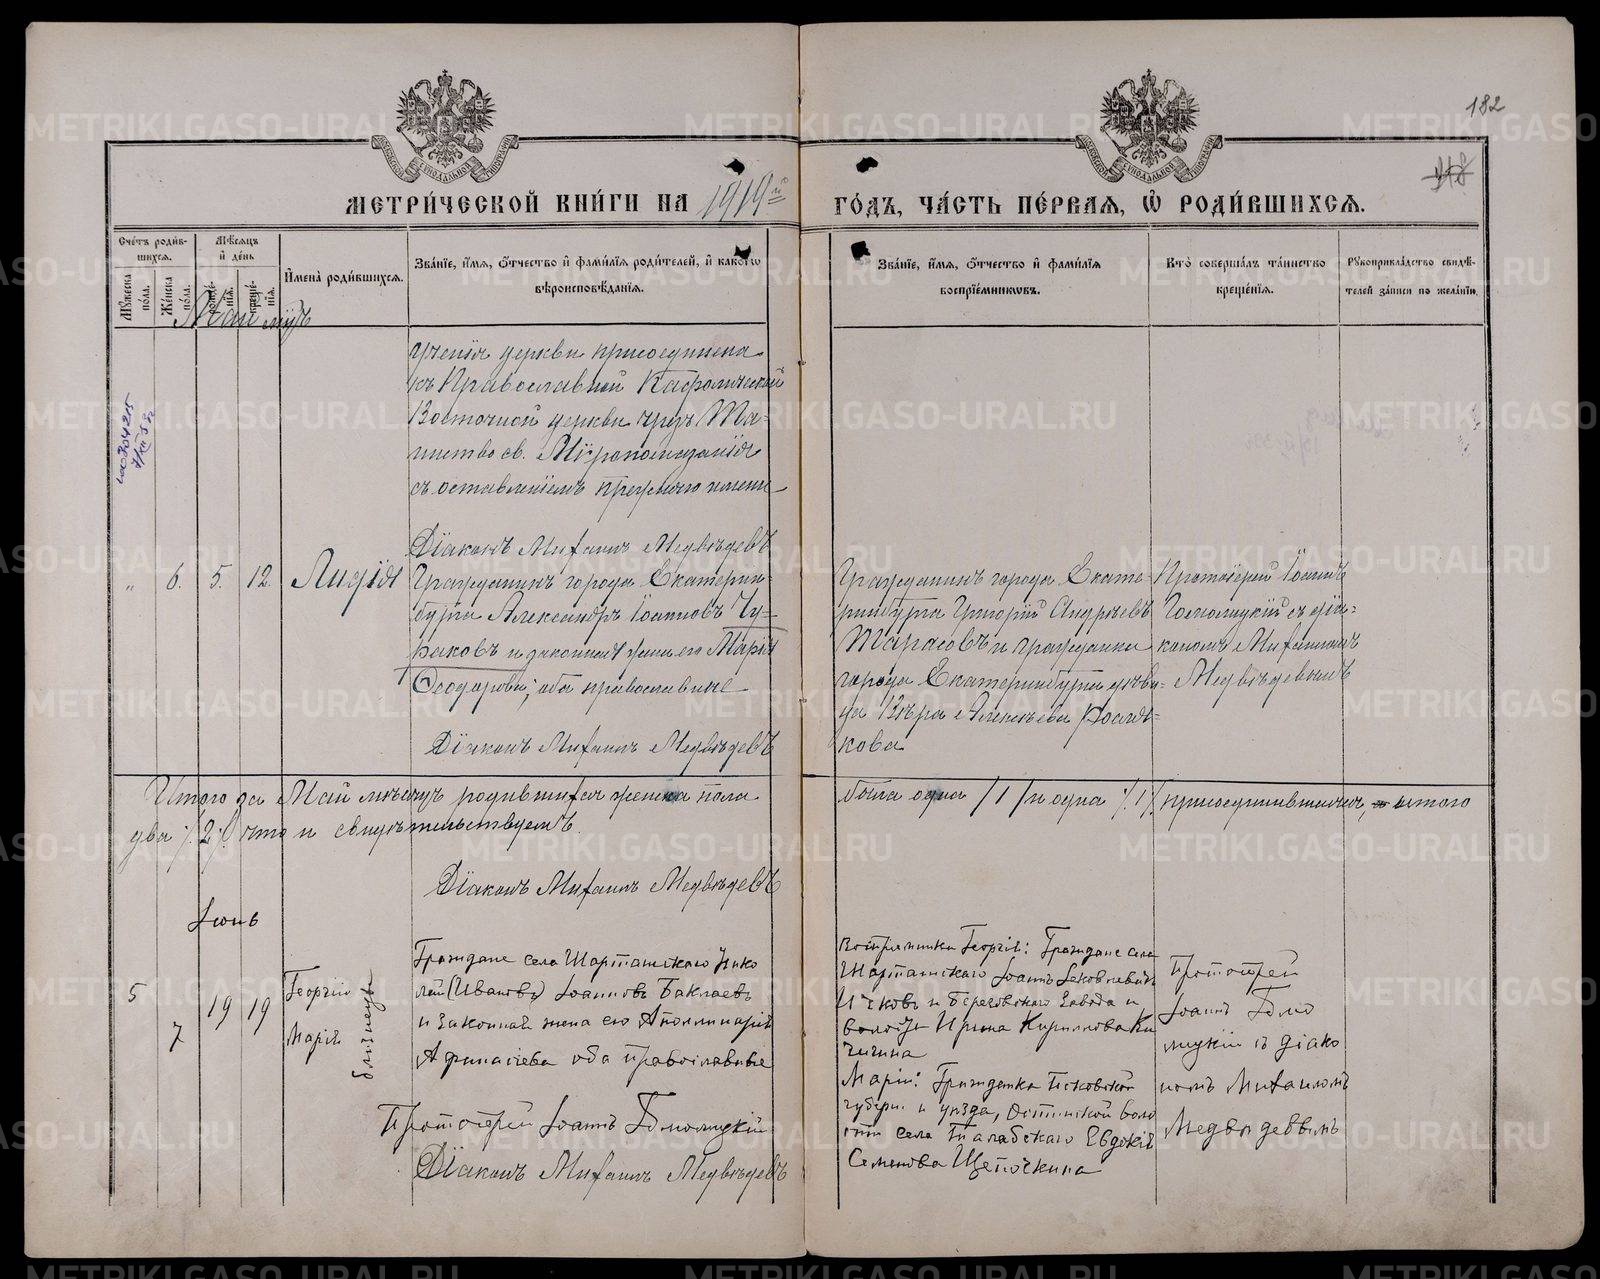 182
МЕТРИ́ЧЕСКОЙ КНИ́ГИ НА 1919й ГО́ДЪ, ЧА́СТЬ ПЕ́РВАЯ, Ѡ҆ РОДИ́ВШИХСЯ.
Сче́тъ роди́в-
шихся.
Мꙋ́жеска по́ла.
Же́нска по́ла.
Мѣ́сяцъ
и҆ де́нь
рожде́-
нїя.
креще́-
нїя.
И҆мена̀ роди́вшихся.
Зва́нїе, и҆́мя, ѻ҆́тчество и҆ фами́лїя роди́телей, и҆ како́гѡ
вѣроисповѣ́данїя.
Зва́нїе, и҆́мя, ѻ҆́тчество и҆ фами́лїя
воспрїе́мниковъ.
Кто̀ соверша́лъ та́инство
креще́нїя.
Рꙋкоприкла́дство свидѣ́-
телей за́писи по жела́нїю.
Май мц҃ъ
ученія церкви присоединена
къ Православной Каѳолической
Восточной церкви чрезъ Та-
инство св. Мѵропомазанія
съ оставленіемъ прежняго имени
Діаконъ Михаилъ Медвѣдевъ
" 6. 5. 12. Лидія
Гражданинъ города Екатерин-
бурга Александръ Іоанновъ Чу-
раковъ и законная жена его Марія
Ѳеодорова; оба православные
Діаконъ Михаилъ Медвѣдевъ
Гражданинъ города Екате-
ринбурга Григорій Андреевъ
Тарасовъ и гражданка
города Екатеринбурга дѣви-
ца Вѣра Алексѣева
кова
Протоіерей Іоаннъ
съ діа-
кономъ Михаиломъ
Медвѣдевымъ
Итого за Май мѣсяцъ родившихся женска пола была одна /1/ и одна /1/ присоединившаяся, итого
два /2/ что и свидѣтельствуемъ.
Діаконъ Михаилъ Медвѣдевъ
Іюнь
5 19 19 Георгій
7 Марія
близнецы
Граждане села Шарташскаго Нико
лай (Ивановъ) Іоанновъ Баклаевъ
и законная жена его Аполлинарія
Афанасіева оба православные
Протоіерей Іоаннъ
Діаконъ Михаилъ Медвѣдевъ
Воспріемники Георгія: Граждане села
Шарташскаго Іоаннъ Іаковлевичъ
и Березовскаго Завода и
волости Ирина Кириллова Ки
чигина
Маріи: Гражданка Псковской
губерн. и уѣзда, Остенской воло
сти села Талабскаго Евдокія
Семенова Щепочкина
Протоіерей
Іоаннъ
съ діако
номъ Михаиломъ
Медвѣдевымъ